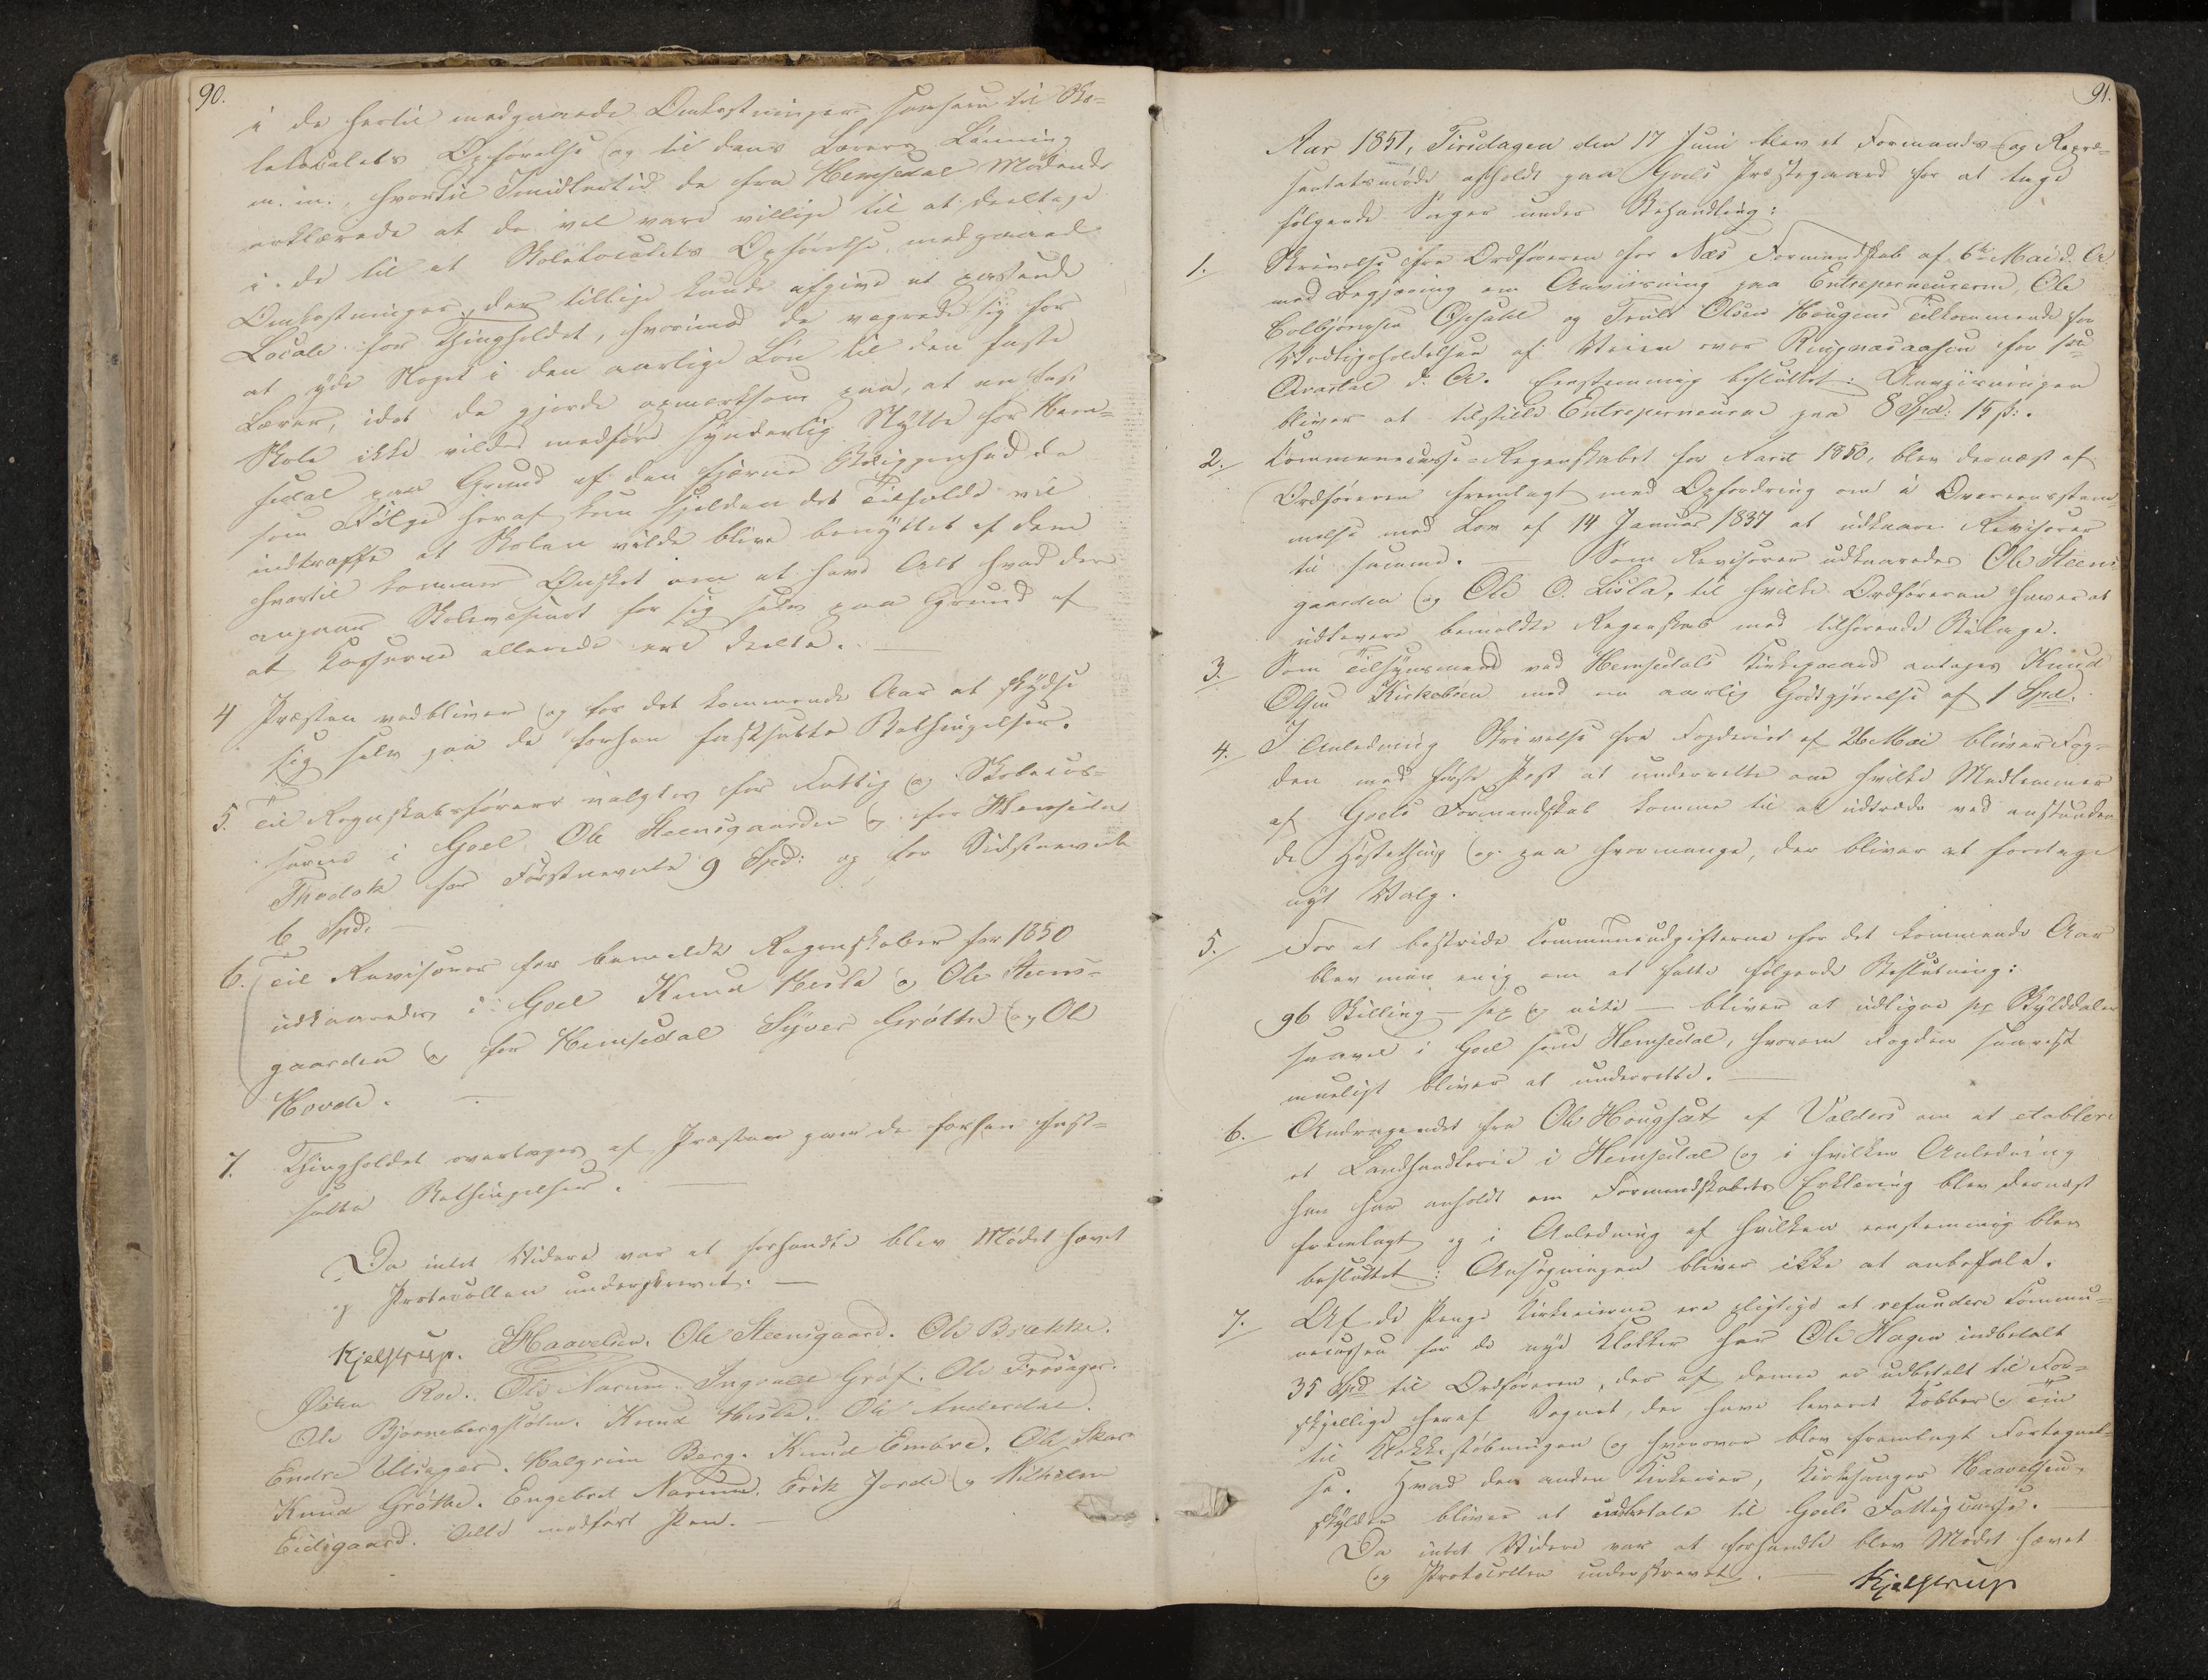 90.
i de hertil medgaaede Omkostninger saasom til Sko-
lelocalets Opførelse og til dens Lærers Lønning
m. m., hvortil Imidlertid de fra Hemsedal Mødende
erklærede at de vel vare villige til at deeltage
i de til et Skolelocalets Opførelse medgaaede
Omkostninger, der tillige kunde afgive et passende
Locale for Thingholdet, hvorimod de vægrede sig for
at yde Noget i den aarlige Løn til den faste
Lærer, idet de gjorde opmærksom paa, at en fast
Skole ikke vilde medføre synderlig Nytte for Hem-
sedal paa Grund af den fjærne Beliggenhed da
som Følge heraf kun sjelden det Tilfælde vil
indtræffe at Skolen vilde blive benyttet af dem
hvortil kommer Ønsket om at have Alt hvad der
angaaer Skolevæsenet for sig selv paa Grund af
at Casserne allerede ere deelte. —
4 Præsten vedbliver og for det kommende Aar at skydse
sig selv paa de forhen fastsatte Bethingelser.
5. Til Regnskabsførere valgtes for Fattig og Skolecas-
serne i Goel Ole Steensgaarden og for Hemsedal
Thodok for Førstnævnte 9 Spd: og for Sidstnævnte
6 Spd. —
6. Til Revisorer for bemeldte Regnskaber for 1850
udkaaredes i Goel Knud Hesla og Ole Steens-
gaarden og for Hemsedal Syver Grøthe og Ole
Hovde. —
7. Thingholdet overtages af Præsten paa de forhen fast-
satte Bethingelser. —
Da intet Videre var at forhandle blev Mødet hævet
og Protocollen underskrevet. —
Kjelstrup. Haavelsen. Ole Steensgaard. Ole Brække.
Østen Roe. Ole Narum. Ingvald Gróf. Ole Frøsager.
Ole Bjørnebergstølen. Knud Hesla. Ole Anderdal.
Endre Ulsager. Halgrim Berg. Knud Embre. Ole Skar
Knud Grøthe. Engebret Narum. Erik Jorde og Wilhelm
Eidsgaard. Alle medført Pen. —
91.
Aar 1851, Tirsdagen den 17 Juni blev et Formands- og Repræ-
sentatsmøde afholdt paa Goels Præstegaard for at tage
følgende Sager under Behandling:
1. Skrivelse fra Ordføreren for Næs Formandskab af 6te Mai d. A.
med Begjæring om Anviisning paa Entrepeneurerne, Ole
Colbjørnsen Opsahl og Truls Olsen Hougens Tilkommende for
Vedligeholdelsen af Veien over Ringnæsaasen for 1ste
Qvartal d. A. Eenstemmig besluttet: Anviisningen
bliver at tilstille Entrepeneurne paa 8 Spd: 15 ß:.
2. Communecasse-Regnskabet for Aaret 1850, blev dernæst af
Ordføreren fremlagt med Opfordring om i Overeensstem-
melse med Lov af 14 Januar 1837 at udkaare Revisorer
til samme. — Som Revisorer udkaaredes Ole Steens-
gaarden og Ole O. Lisla, til hvilke Ordføreren haver at
udlevere bemeldte Regnskab med tilhørende Bilage.
3. Som Tilsynsmand ved Hemsedals Kirkegaard antages Knud
Olsen Kirkebøen med en aarlig Godtgjørelse af 1 Spd.
4. I Anledning Skrivelse fra Fogderiet af 26 Mai bliver Fog-
den med første Post at underrette om hvilke Medlemmer
af Goels Formandskab komme til at udtræde ved anstunden-
de Høstething og paa hvormange, der bliver at foretage
nyt Valg.
5. For at bestride Communeudgifterne for det kommende Aar
blev man enig om at fatte følgende Beslutning:
96 Skilling — sex og niti — bliver at udligne pr Skylddaler
saavel i Goel som Hemsedal, hvorom Fogden snarest
mueligt bliver at underrette. —
6. Andragendet fra Ole Hougsut af Valders om at etablere
et Landhandlerie i Hemsedal og i hvilken Anledning
han har anholdt om Formandskabets Erklæring blev dernæst
fremlagt og i Anledning af hvilken eenstemmig blev
besluttet: Ansøgningen bliver ikke at anbefale.
7. Af de Penge Kirkeeierne ere pligtige at refundere Commu-
necassen for de nye Klokker har Ole Hagen indbetalt
35 Spd til Ordføreren, der af denne er udbetalt til For-
skjellige heraf Sognet, der have leveret Kobber og Tin
til Klokkestøbningen og hvorover blev fremlagt Fortegnel-
se. Hvad den anden Kirkeeier, Kirkesanger Haavelsen,
skylder bliver at indbetale til Goels Fattigcasse. —
Da intet Videre var at forhandle blev Mødet hævet
og Protocollen underskrevet. —
Kjelstrup